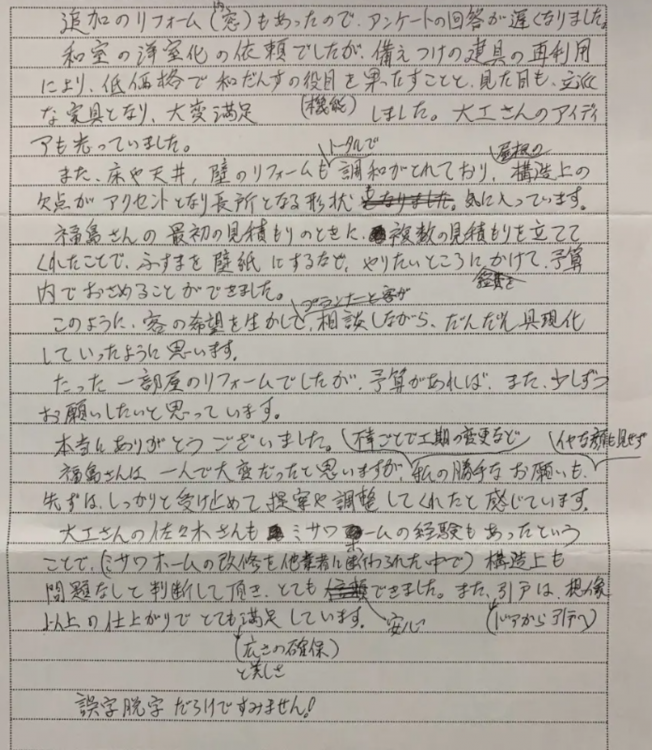 追加のリフォーム(内窓)もあったので、アンケートの回答が遅くなりました。
和室の洋室化の依頼でしたが、備えつけの建具の再利用
により、低価格で和だんすの役目を果たすことと、見た目も、立派
な家具となり、大変満足(機能)しました。大工さんのアイディ
アも光っていました。
また、床や天井、壁のリフォームもトータルで調和がとれており、屋根の構造上の
欠点がアクセントとなり長所となる形状となりました。気に入っています。
福島さんの最初の見積もりのときに、複数の見積もりを立てて
くれたことで、ふすまを壁紙にするなぜ、やりたいところに経費をかけて、予算
内でおさめることができました。
このように、客の希望を生かして、プランナーと客が相談しながら、だんだん具現化
していったように思います。
たった一部屋のリフォームでしたが、予算があれば、また、少しずつ
お願いしたいと思っています。
本当にありがとうございました。
福島さんは、一人で大変だったと思いますが、私の勝手なお願いも、(仕事ごとで工期の変更など イヤな顔も見せず
先ずは、しっかりと受け止めて、提案や調整してくれたと感じています。
大工さんの佐々木さんもミサワホームの経験もあったという
ことで、(ミサワホームの改修を他業者に断わられた中で)構造上も
問題なしと判断して頂き、とても安心できました。また、引戸は、想像
以上の仕上がりでとても満足しています。(ドアから引戸へ)
(広さの確保)
と美しさ
誤字脱字だらけですみません!